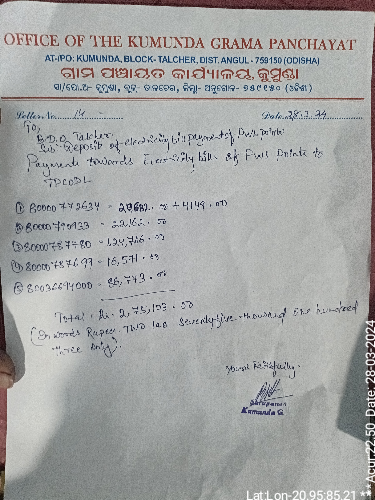 OFFICE OF THE KUMUNDA GRAMA PANCHAYAT
AT-/PO: KUMUNDA, BLOCK- TALCHER, DIST. ANGUL - 759150 (ODISHA)
ଗ୍ରାମ ପଞ୍ଚାୟତ କାର୍ଯ୍ୟାଳୟ, କୁମୁଣ୍ଡା
ସା/ପୋ.ଅ- କୁମୁଣ୍ଡା, ବ୍ଲକ- ତାଳଚେର, ଜିଲ୍ଲା- ଅନୁଗୋଳ- ୭୫୯୧୫୦ (ଓଡ଼ିଶା)
Letter No 14 Date 28.3.24
To,
B.D.O Talcher
Sub- Deposit of electricity bill payment of
Payment towards Electricity bills of Full Points to
TPCODL
① 80000772634 - + 4149.00
② - 22,162.00
③ 80000787780 = 124,766.00
④ 80000787699 = 16,571.00
⑤ 80036694000 = 86,743.00
Total. Rs. 2,75,103.00
(In words Rupees Two lac Seventy five thousand one hundred
three only).
Yours Faithfully
Sarapanch
Kumunda G.
Lat:Lon-20.95:85.21 ***Acur 22.50 Date: 28:03:2024